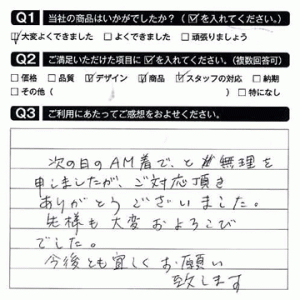 Q1 当社の商品はいかがでしたか？（☑を入れてください。）
☑大変よくできました □よくできました □頑張りましょう
Q2 ご満足いただけた項目に☑を入れてください。（複数回答可）
□価格 □品質 ☑デザイン ☑商品 ☑スタッフの対応 □納期
□その他（ ） □特になし
Q3 ご利用にあたってご感想をおよせください。
次の日のAM着で、と無理を
申しましたが、ご対応頂き
ありがとうございました。
先様も大変およろこび
でした。
今後とも宜しくお願い
致します